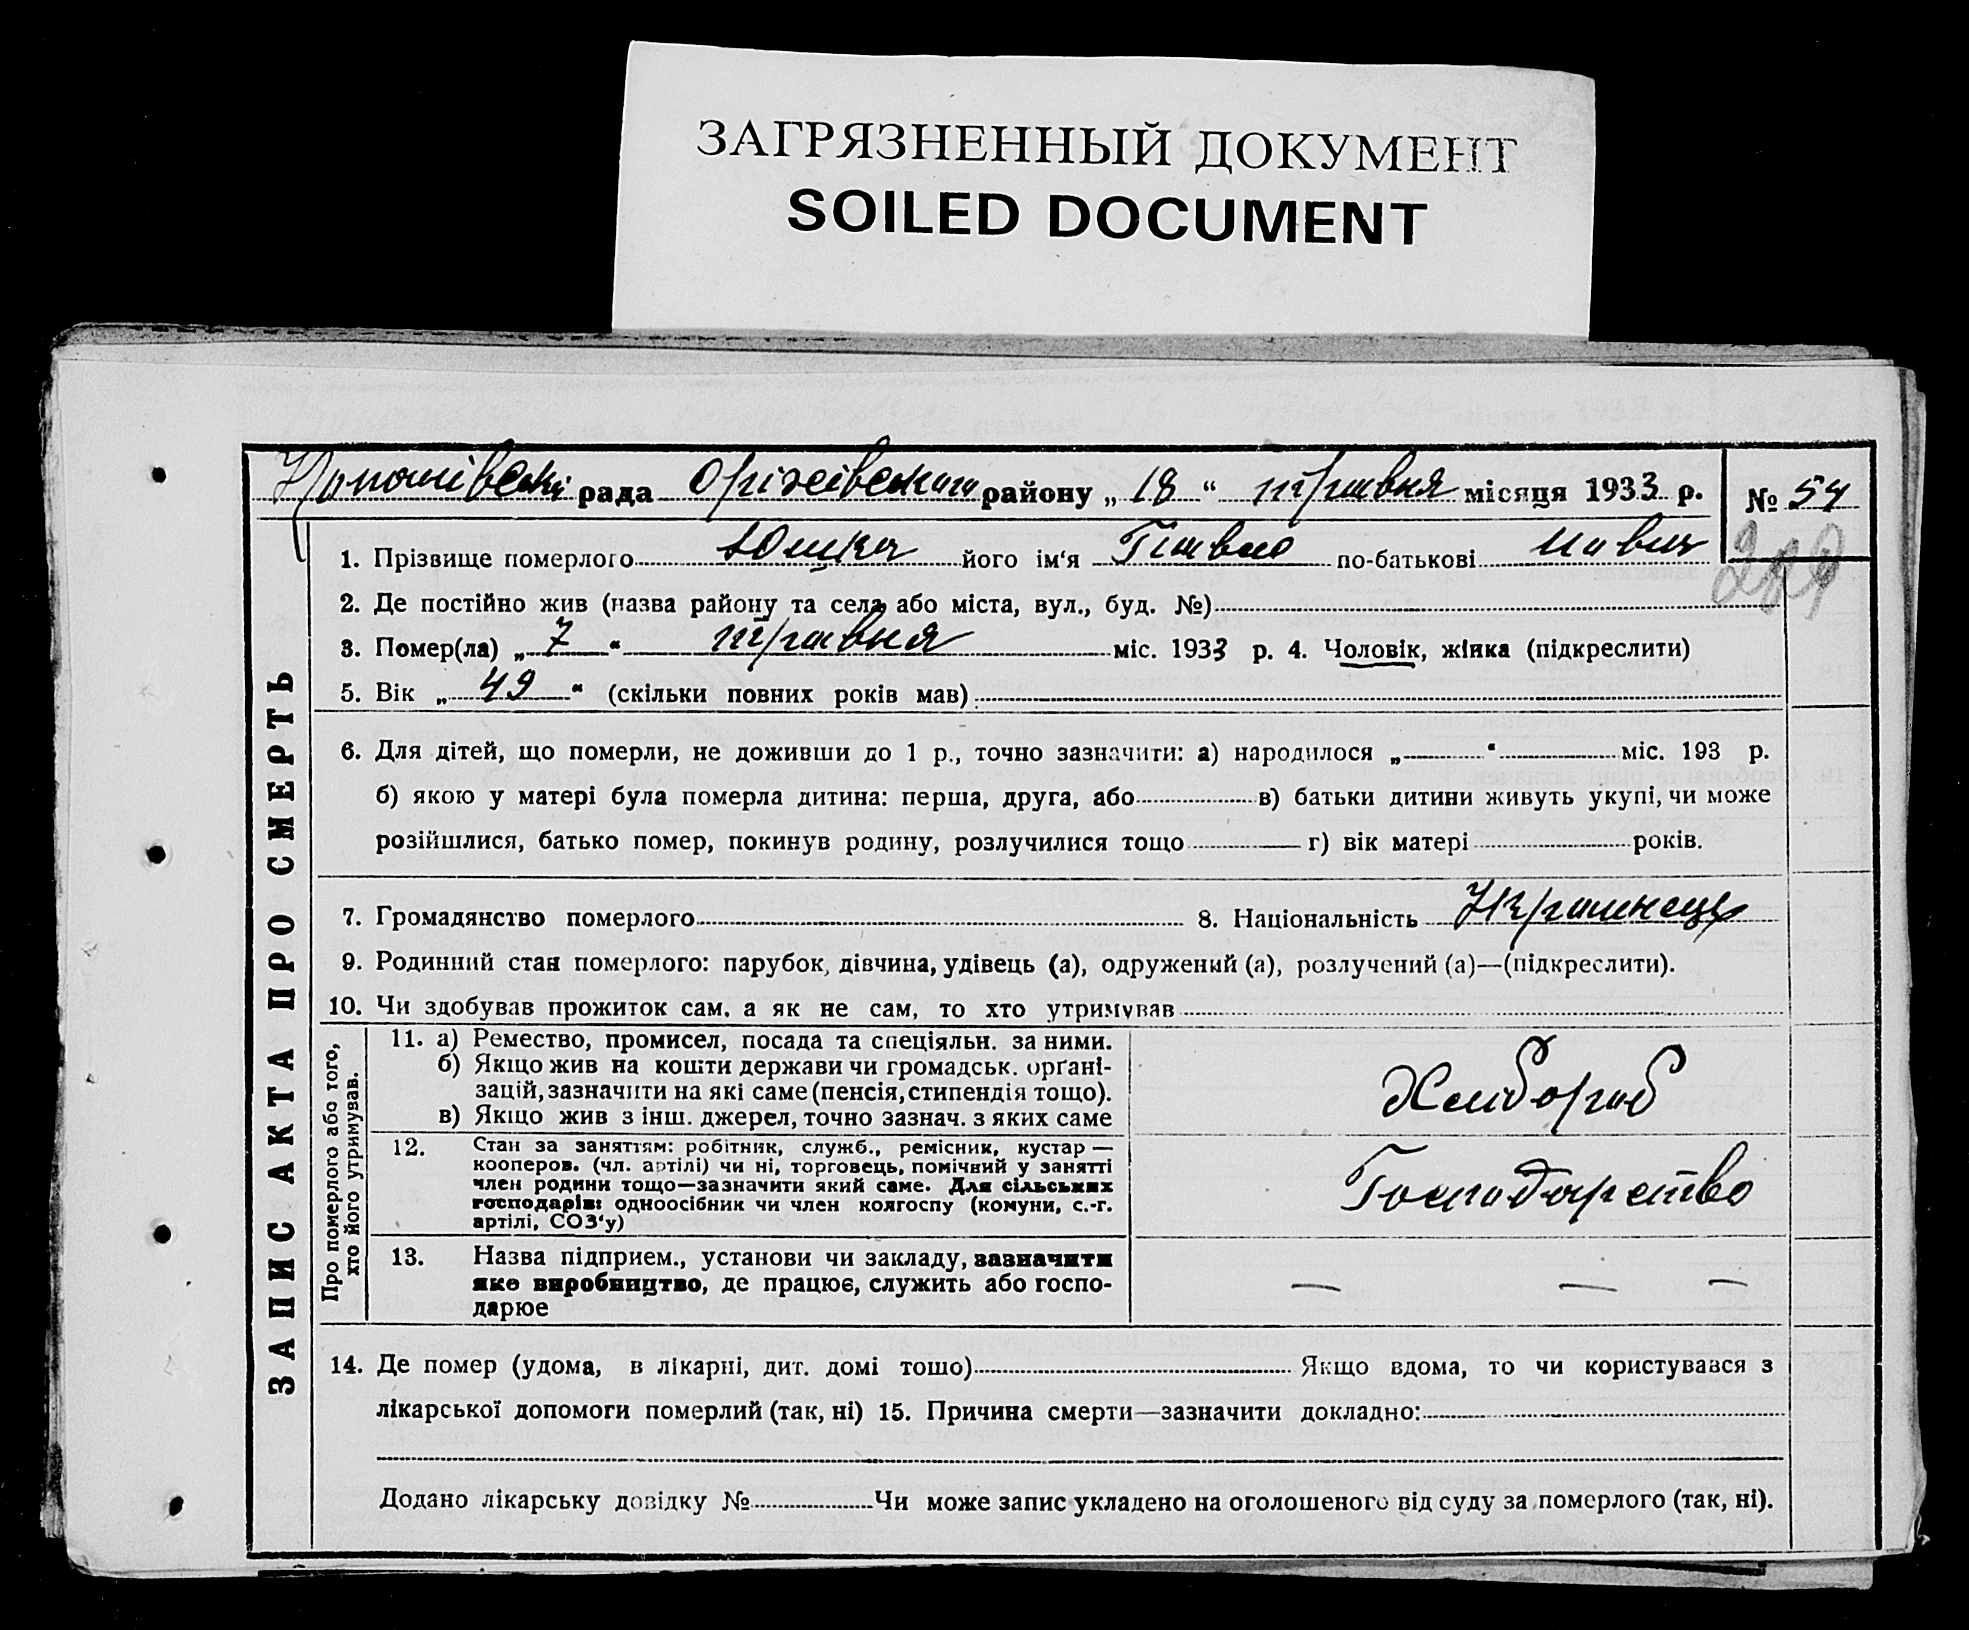 ЗАГРЯЗНЕННЫЙ ДОКУМЕНТ
SOILED DOCUMENT
рада Оріхівського району „ 18 “ травня місяця 1933 р. № 54
289
ЗАПИС АКТА ПРО СМЕРТЬ
1. Прізвище померлого Юшка його ім‘я Павло по-батькові
2. Де постійно жив (назва району та села або міста, вул., буд. №)
3. Помер(ла) „ 7 “ травня міс. 1933 р. 4. Чоловік, жінка (підкреслити)
5. Вік „ 49 “ (скільки повних років мав)
6. Для дітей, що померли, не доживши до 1 р., точно зазначити: а) народилося „ “ міс. 193 р.
б) якою у матері була померла дитина: перша, друга, або в) батьки дитини живуть укупі, чи може
розійшлися, батько помер, покинув родину, розлучилися тощо г) вік матері років.
7. Громадянство померлого 8. Національність Українець
9. Родинний стан померлого: парубок, дівчина, удівець (а), одружений (а), розлучений (а)—(підкреслити).
10. Чи здобував прожиток сам, а як не сам, то хто утримував
Про померлого або того,
хто його утримував.
11. а) Ремество, промисел, посада та спеціяльн. за ними.
б) Якщо жив на кошти держави чи громадськ. орґані-
зацій, зазначити на які саме (пенсія, стипендія тощо).
в) Якщо жив з інш. джерел, точно зазнач. з яких саме
Хлібороб
12. Стан за заняттям: робітник, служб., ремісник, кустар —
кооперов. (чл. артілі) чи ні, торговець, помічний у занятті
член родини тощо—зазначити який саме. Для сільських
господарів: одноосібник чи член колгоспу (комуни, с.-г.
артілі, СОЗ‘у)
Господарство
13. Назва підприєм., установи чи закладу, зазначити
яке виробництво, де працює, служить або госпо-
дарює
— — —
14. Де помер (удома, в лікарні, дит. домі тощо) Якщо вдома, то чи користувався з
лікарської допомоги померлий (так, ні) 15. Причина смерти—зазначити докладно:
Додано лікарську довідку № Чи може запис укладено на оголошеного від суду за померлого (так, ні).